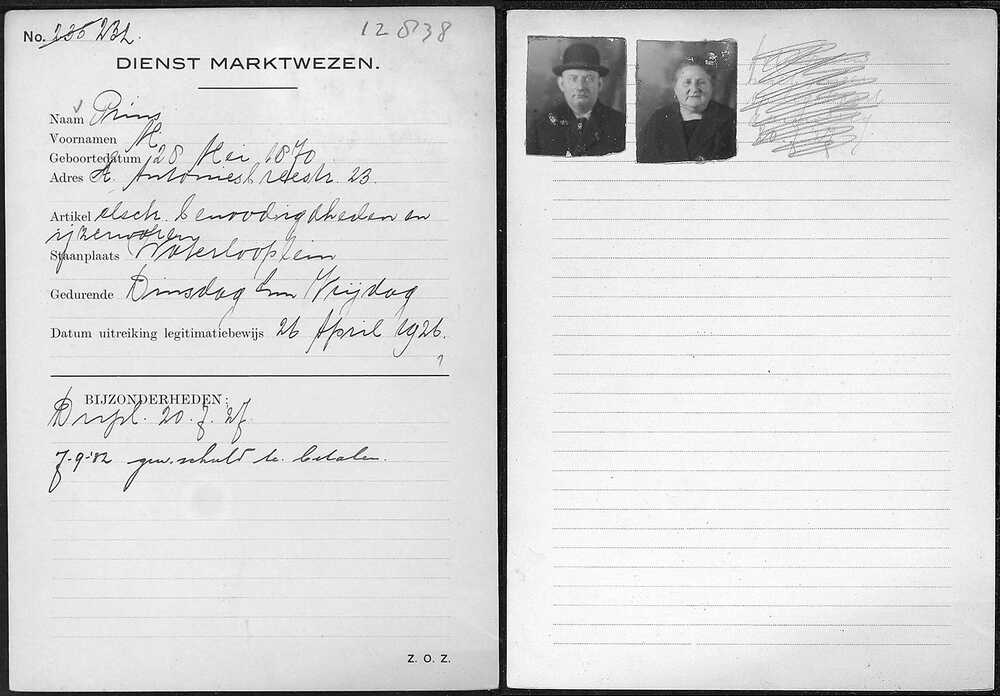 No. 235 232.
12838
DIENST MARKTWEZEN.
Naam Prins
Voornamen M
Geboortedatum 28 Mei 1870
Adres St. Antoniesbreestr. 23.
Artikel elsch. benoodigdheden en
ijzerwaren
Staanplaats Waterlooplein
Gedurende Dinsdag t/m Vrijdag
Datum uitreiking legitimatiebewijs 26 April 1926.
BIJZONDERHEDEN:
Dupl. 20.7.27.
7-9-'32 gew. schuld te betalen.
Z. O. Z.